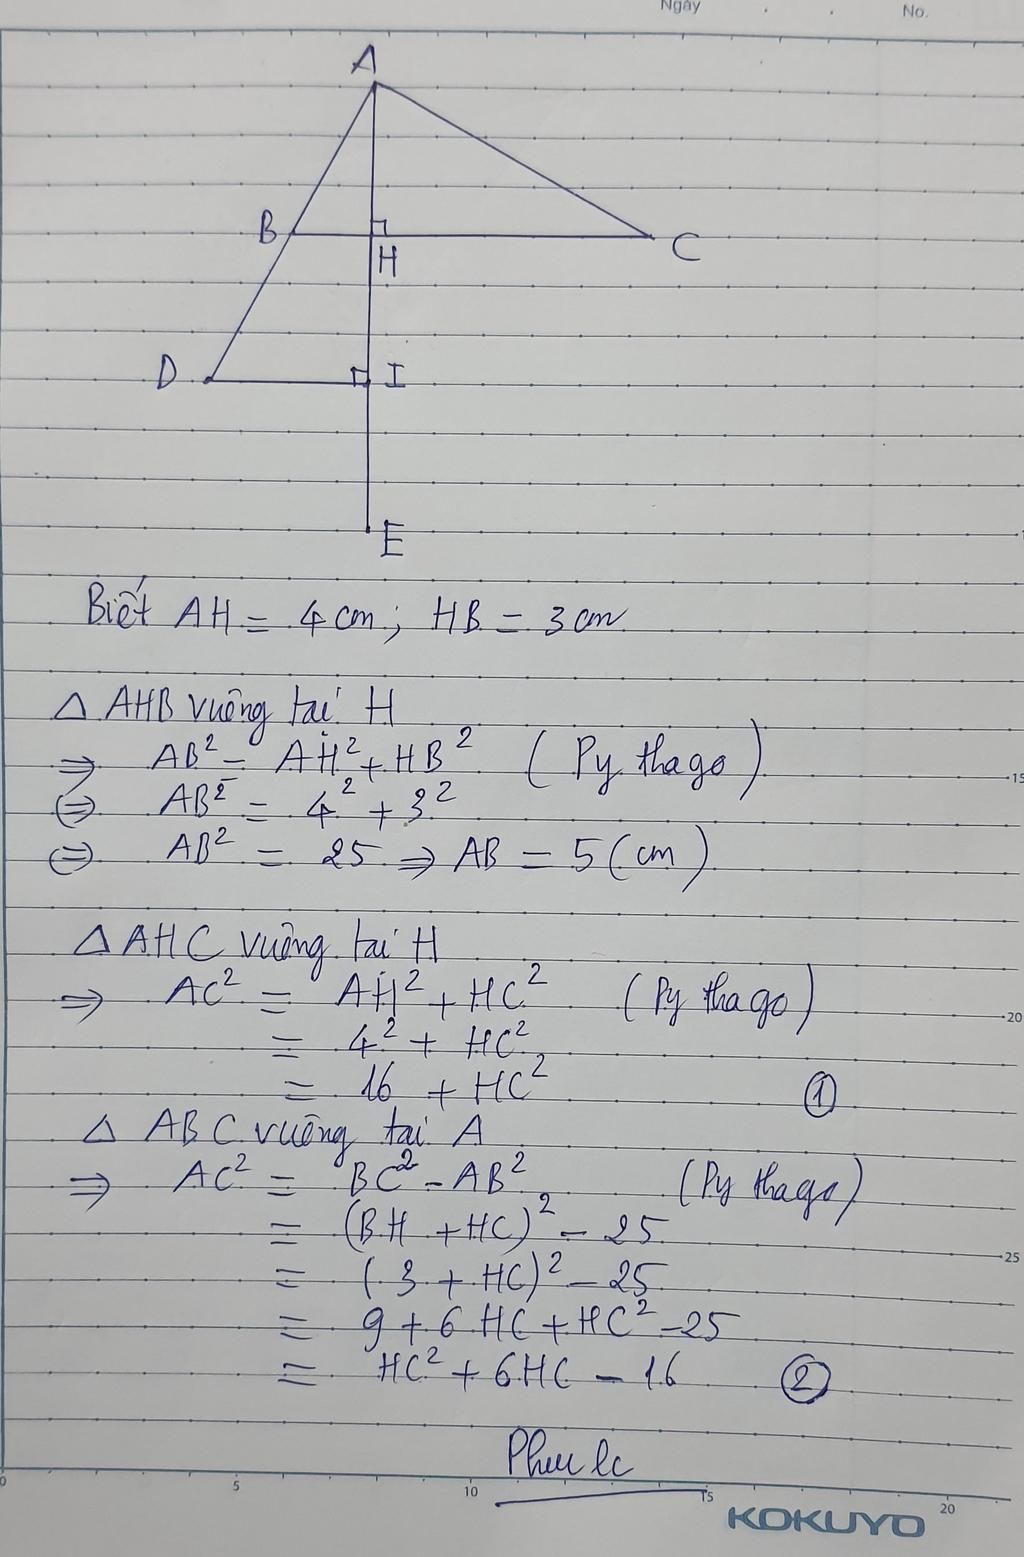 Ngày . . No.
A
B
H
C
D
I
E
Biết AH = 4 cm; HB = 3 cm
△ AHB vuông tại H
⇒ AB² = AH² + HB² (Pythago)
⇔ AB² = 4² + 3²
⇔ AB² = 25 ⇒ AB = 5 (cm)
△ AHC vuông tại H
⇒ AC² = AH² + HC² (Pythago)
= 4² + HC²
= 16 + HC² ①
△ ABC vuông tại A
⇒ AC² = BC² - AB² (Pythago)
= (BH + HC)² - 25
= (3 + HC)² - 25
= 9 + 6HC + HC² - 25
= HC² + 6HC - 16 ②
0 5 10 15 20
15
20
25
KOKUYO